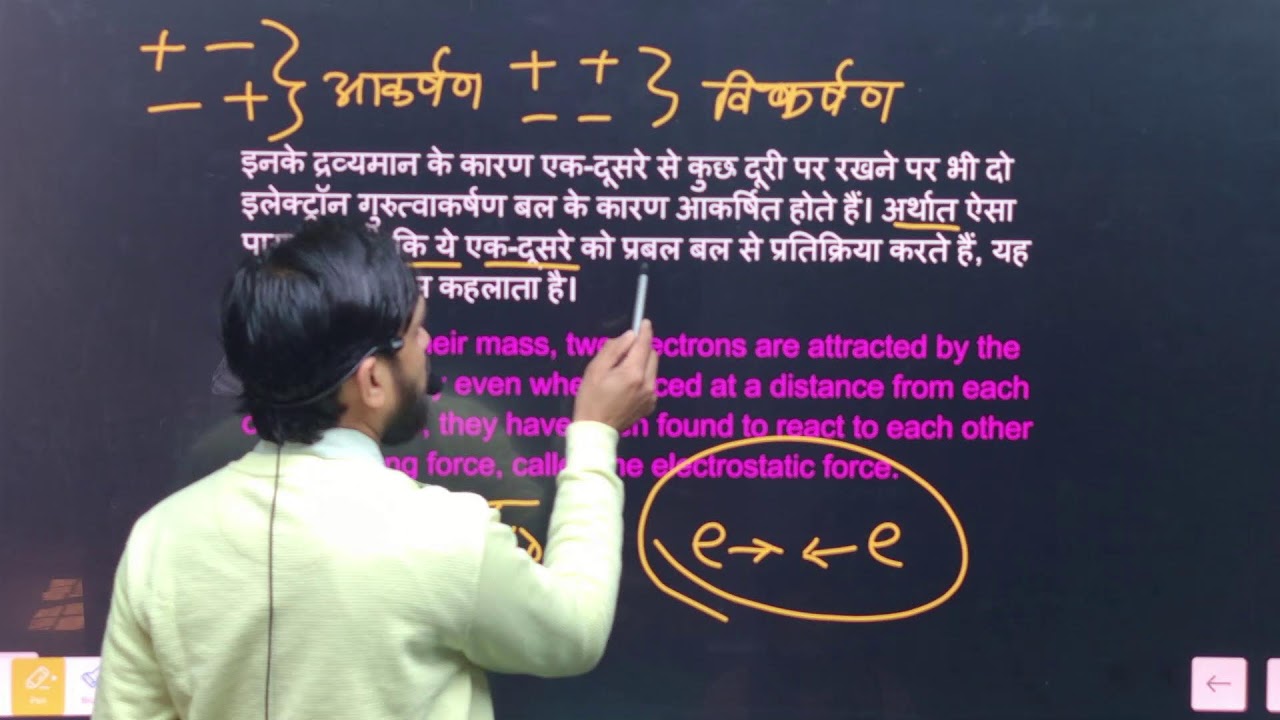 + − } आकर्षण + + } विकर्षण
− + − −
इनके द्रव्यमान के कारण एक-दूसरे से कुछ दूरी पर रखने पर भी दो
इलेक्ट्रॉन गुरुत्वाकर्षण बल के कारण आकर्षित होते हैं। अर्थात ऐसा
कि ये एक-दूसरे को प्रबल बल से प्रतिक्रिया करते हैं, यह
कहलाता है।
mass, two are attracted by the
even at a distance from each
they have found to react to each other
force, electrostatic force.
e → ← e
Pen
←